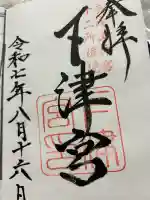 奉拝
下津宮
令和七年八月十六日